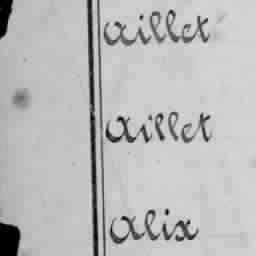 Aillet
Aillet
Alix